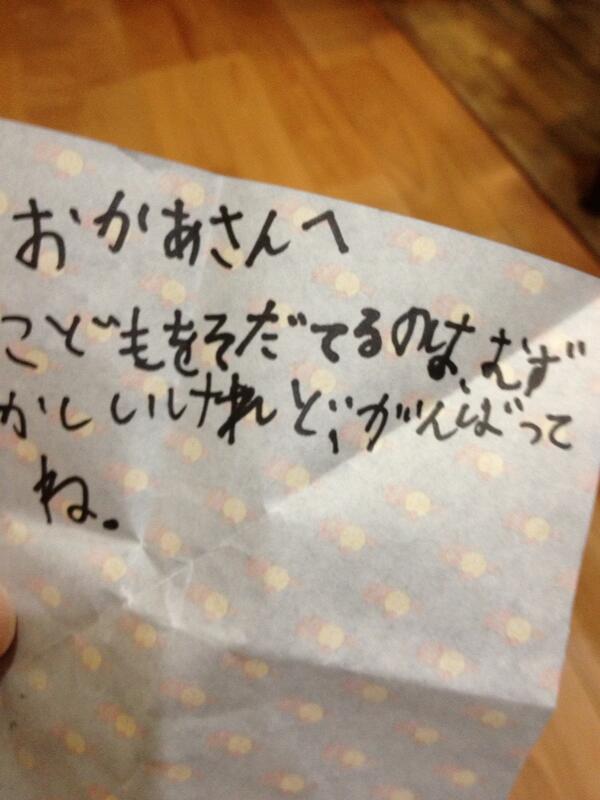 おかあさんへ
こどもをそだてるのは、むず
かしいけれど、がんばって
ね。